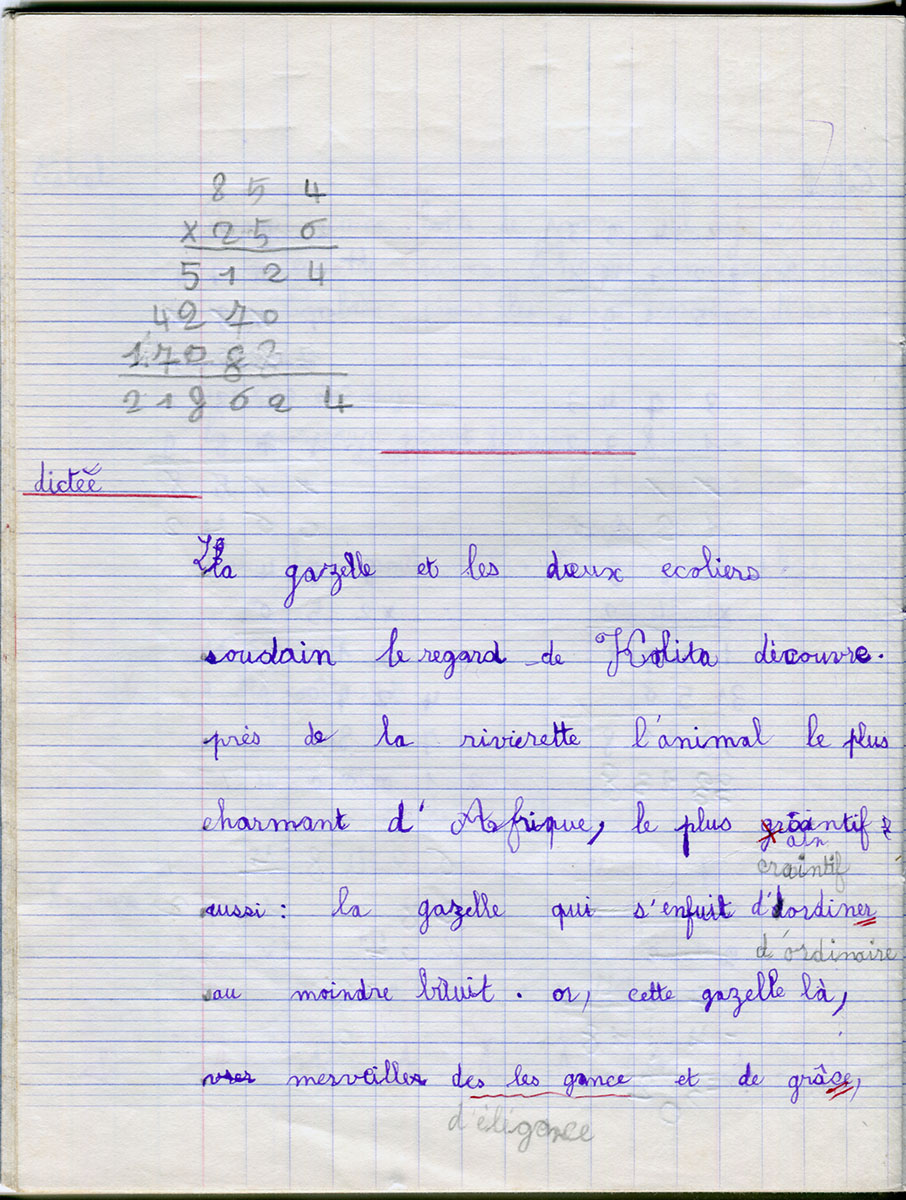 8 5 4
x 2 5 6
5 1 2 4
4 2 7 0
1 7 0 8
2 1 8 6 2 4
dictée
La gazelle et les deux ecoliers
soudain le regard de Kolita découvre.
près de la rivierette l'animal le plus
charmant d'Afrique, le plus
ain
craintif
aussi : la gazelle qui s'enfuit d'ordiner
d'ordinaire
au moindre bruit. or, cette gazelle là,
merveilles des les gance et de grâce,
d'éligance